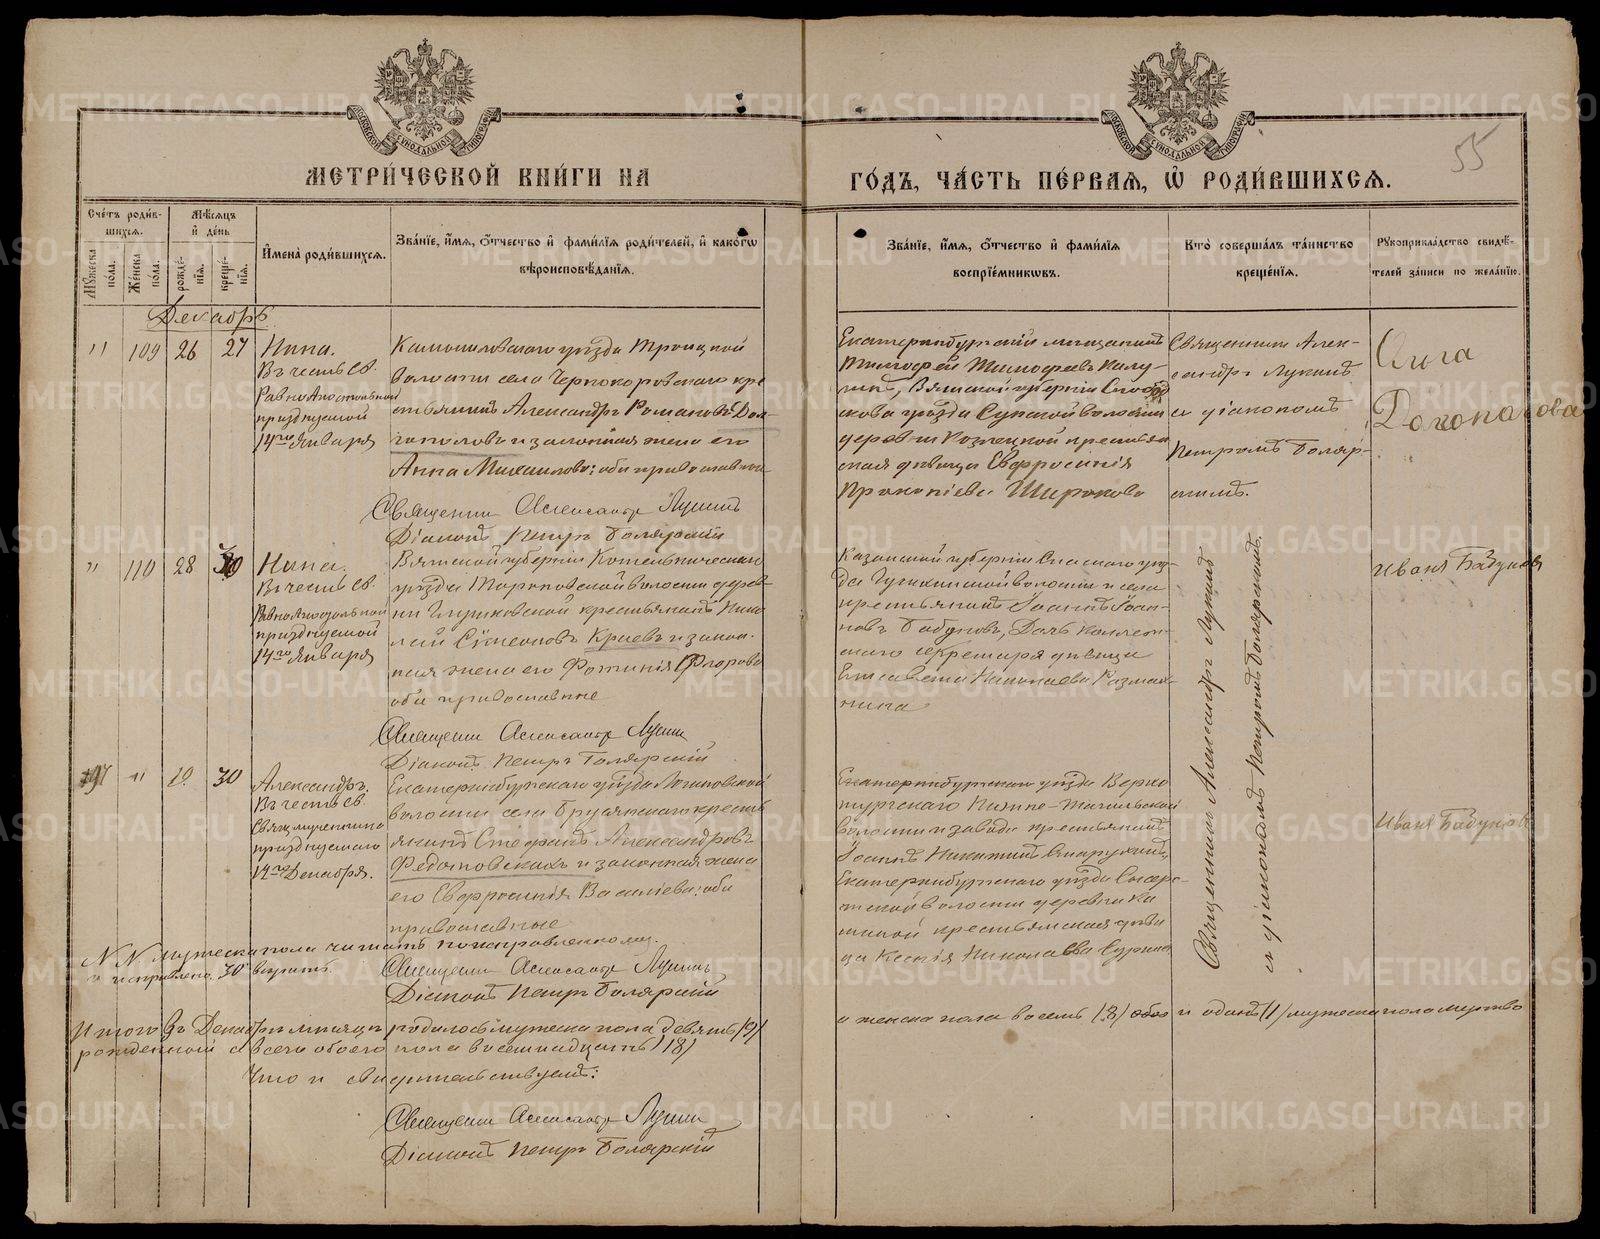 МЕТРИ́ЧЕСКОЙ КНИ́ГИ НА
ГО́ДЪ, ЧА́СТЬ ПЕ́РВАЯ, Ѡ҆ РОДИ́ВШИХСЯ.
55
МОСКОВСКОЙ СѴНОДАЛЬНОЙ ТИПОГРАФІИ
МОСКОВСКОЙ СѴНОДАЛЬНОЙ ТИПОГРАФІИ
Сче́тъ роди́вшихся.
Мѣ́сяцъ и҆ де́нь
Мꙋ́жеска по́ла.
Же́нска по́ла.
рожде́нїя.
креще́нїя.
И҆мена̀ роди́вшихся.
Зва́нїе, и҆́мя, ѻ҆́тчество и҆ фами́лїя роди́телей, и҆ како́гѡ
вѣроисповѣ́данїя.
Зва́нїе, и҆́мя, ѻ҆́тчество и҆ фами́лїя
воспрїе́мникѡвъ.
Кто̀ соверша́лъ та́инство
креще́нїя.
Рꙋкоприкла́дство свидѣ́телей за́писи по жела́нїю.
Декабрь
" 109 26 27
Нина.
Въ честь св.
Равноапостольной
празднуемой
14го Января
Камышловскаго уѣзда Троицкой
волости села Чернокоровскаго кре
стьянинъ Александръ Романовъ Дол
гополовъ и законная жена его
Анна Михаилова: оба православные
Священникъ Александръ Лукинъ
Діаконъ Петръ Болярскій
Екатеринбургскій мѣщанинъ
Тимофей Тимофеевъ Калу-
гинъ, Вятской губерніи Слобод
скова уѣзда Сунской волости
деревни Кознецкой крестьян
ская дѣвица Евфросинія
Прокопіева Широкова
Священникъ Алек-
сандръ Лукинъ
и діакономъ
Петромъ Боляр-
скимъ.
Ольга
" 110 28 30
Нина.
Въ честь св.
Равноапостольной
празднуемой
14го Января
Вятской губерніи Котельническаго
уѣзда волости дерев-
ни Глушковской крестьянинъ Нико
лай Сімеоновъ Краевъ и закон.
ная жена его Фотинія Флорова
оба православные
Священникъ Александръ Лукинъ
Діаконъ Петръ Болярскій
Казанской губерніи Спаскаго уѣз-
да волости и села
крестьянинъ Іоаннъ Іоан-
новъ Бабуновъ, Дочь коллеж-
скаго секретаря дѣвица
Елисавета Николаева Размах-
нина
Священникъ Александръ Лукинъ
и діакономъ Петромъ Болярскимъ.
Иванъ Бабуновъ
197 " 29. 30
Александръ.
Въ честь св.
Свящ мученика
празднуемаго
14го Декабря.
Екатеринбургскаго уѣзда Логиновской
волости села Брусянскаго кресть
янинъ Стефанъ Александровъ
Федотовскихъ и законная жена
его Евфросинія Василіева: оба
православные
Священникъ Александръ Лукинъ
Діаконъ Петръ Болярскій
Екатеринбургскаго уѣзда Верхо
турскаго Нижне-Тагильской
волости и завода крестьянинъ
Іоаннъ Никитинъ
Екатеринбургскаго уѣзда Сысер-
тской волости деревни Ка
крестьянская дѣви
ца Ксенія Николаева
Иванъ Бабуновъ
NN мужеска пола читать по исправленному.
и исправлено "30" вѣрить.
Итого въ Декабрѣ мѣсяцѣ родилось мужеска пола девять /9/
а женска пола восемь /8/ и одинъ /1/ мужеска пола мертво
рожденный а всего обоего пола восемнадцать /18/
Что и свидѣтельствуемъ:
Священникъ Александръ Лукинъ
Діаконъ Петръ Болярскій
METRIKI.GASO-URAL.RU